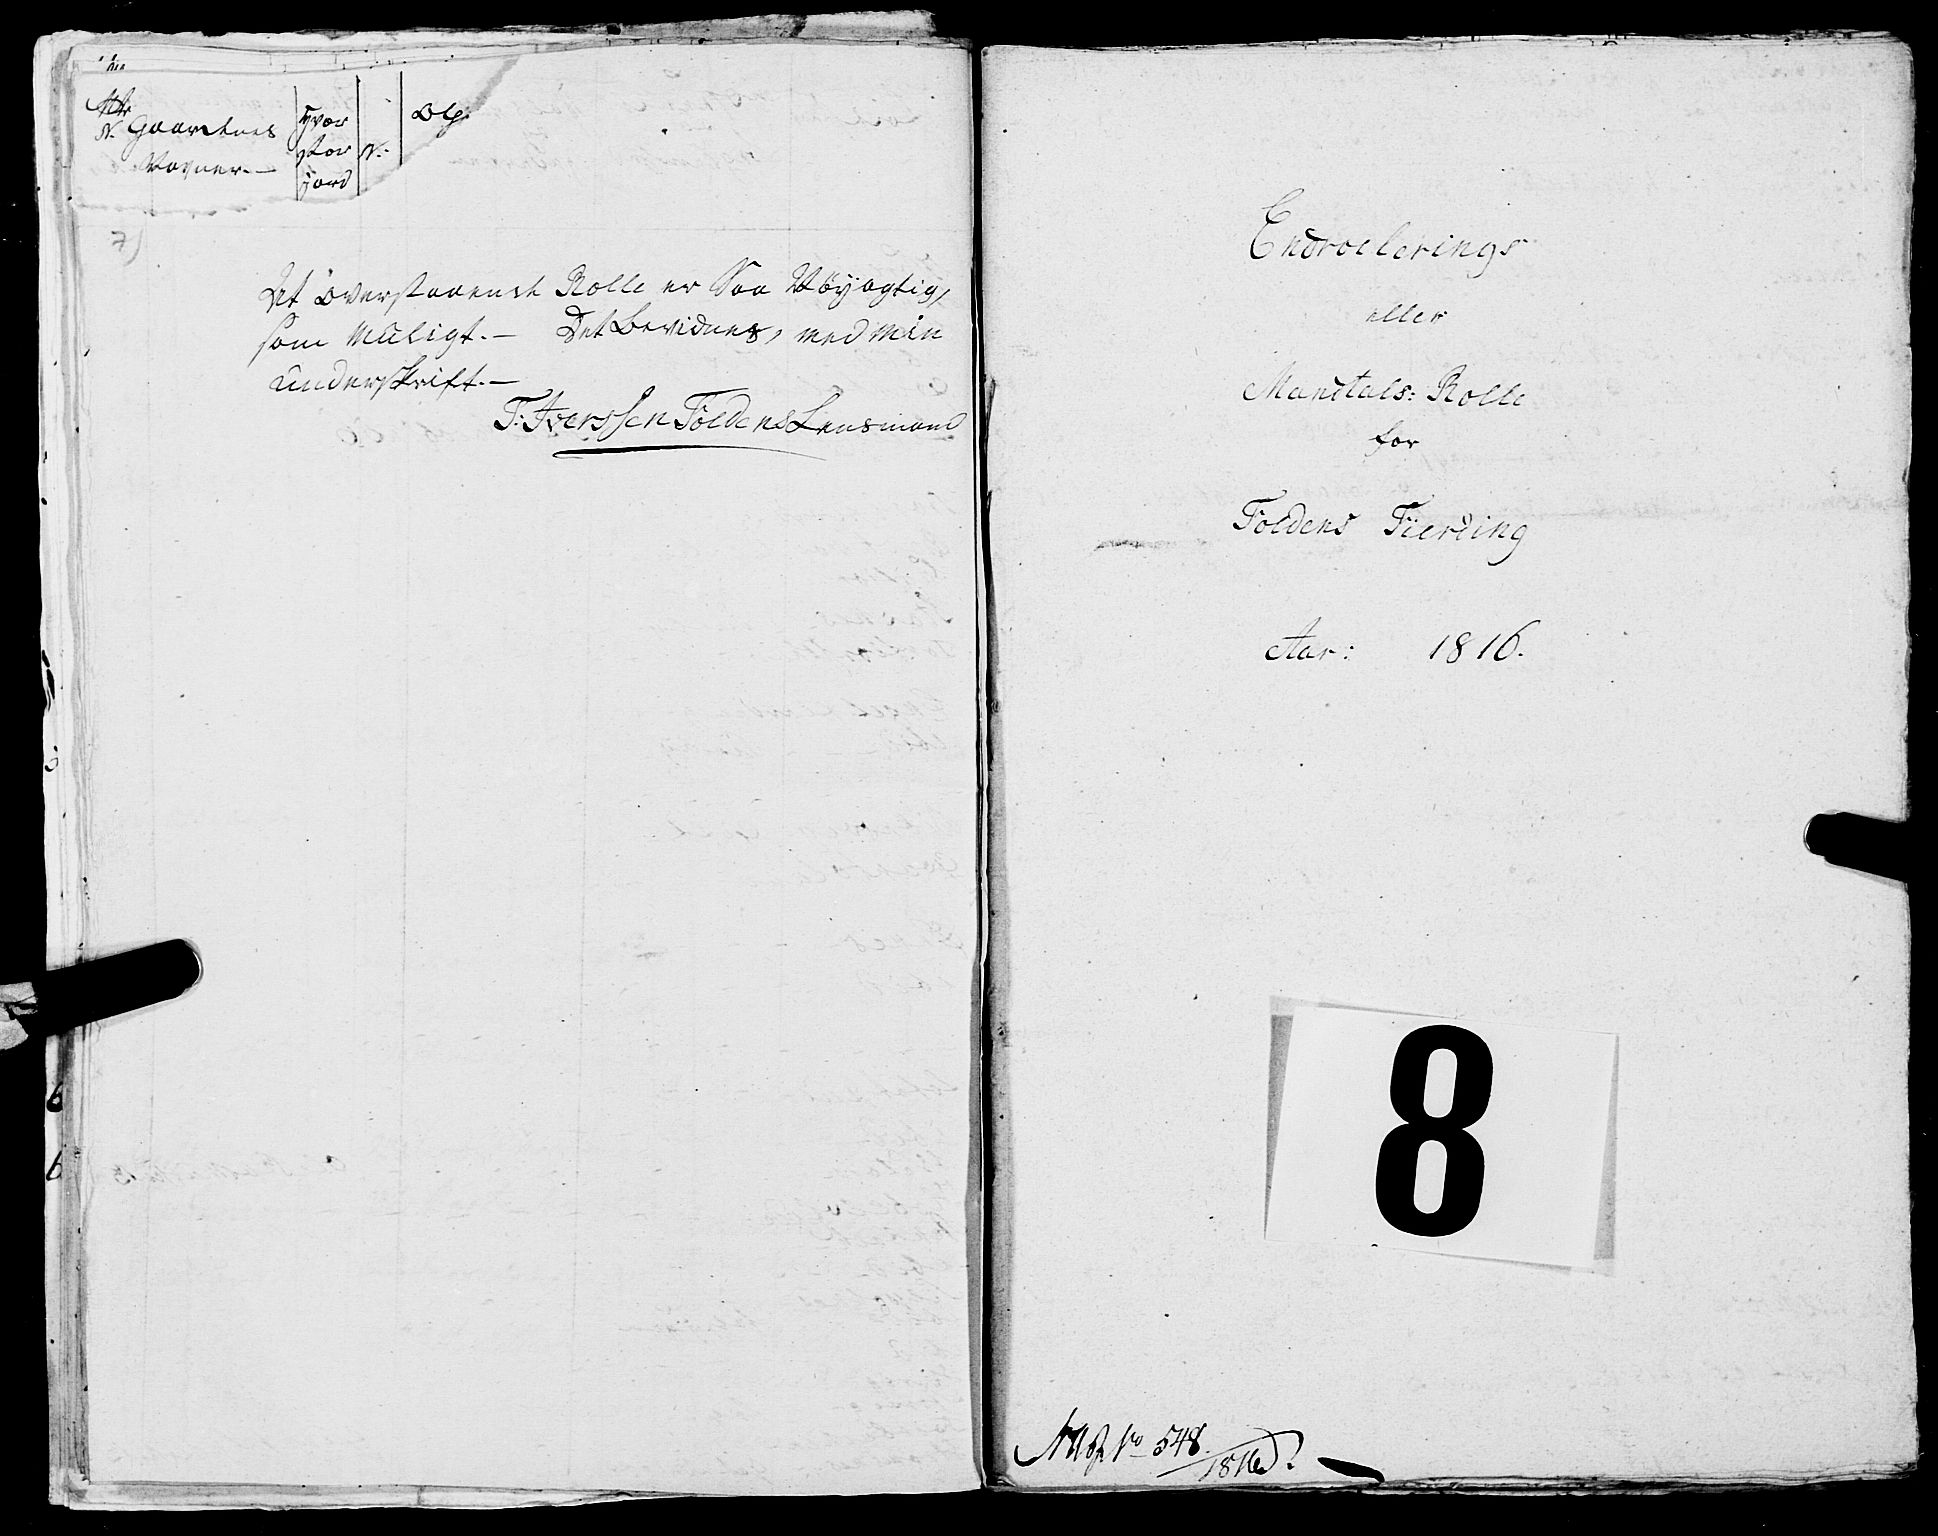 Mtr
N. Gaardenes
Navner.-
Hvor
stor
Jord
N:
7)
Det Overstaaende Rolle er Saa Nöyagtig,
som Muligt.- Det Bevidnes, med Min
Underskrift.-
T. Iverssen Foldens Lensmand
Enroelerings
eller
Mandtals: Rolle
for
Foldens Fierding
Aar: 1816.
8
No 548.